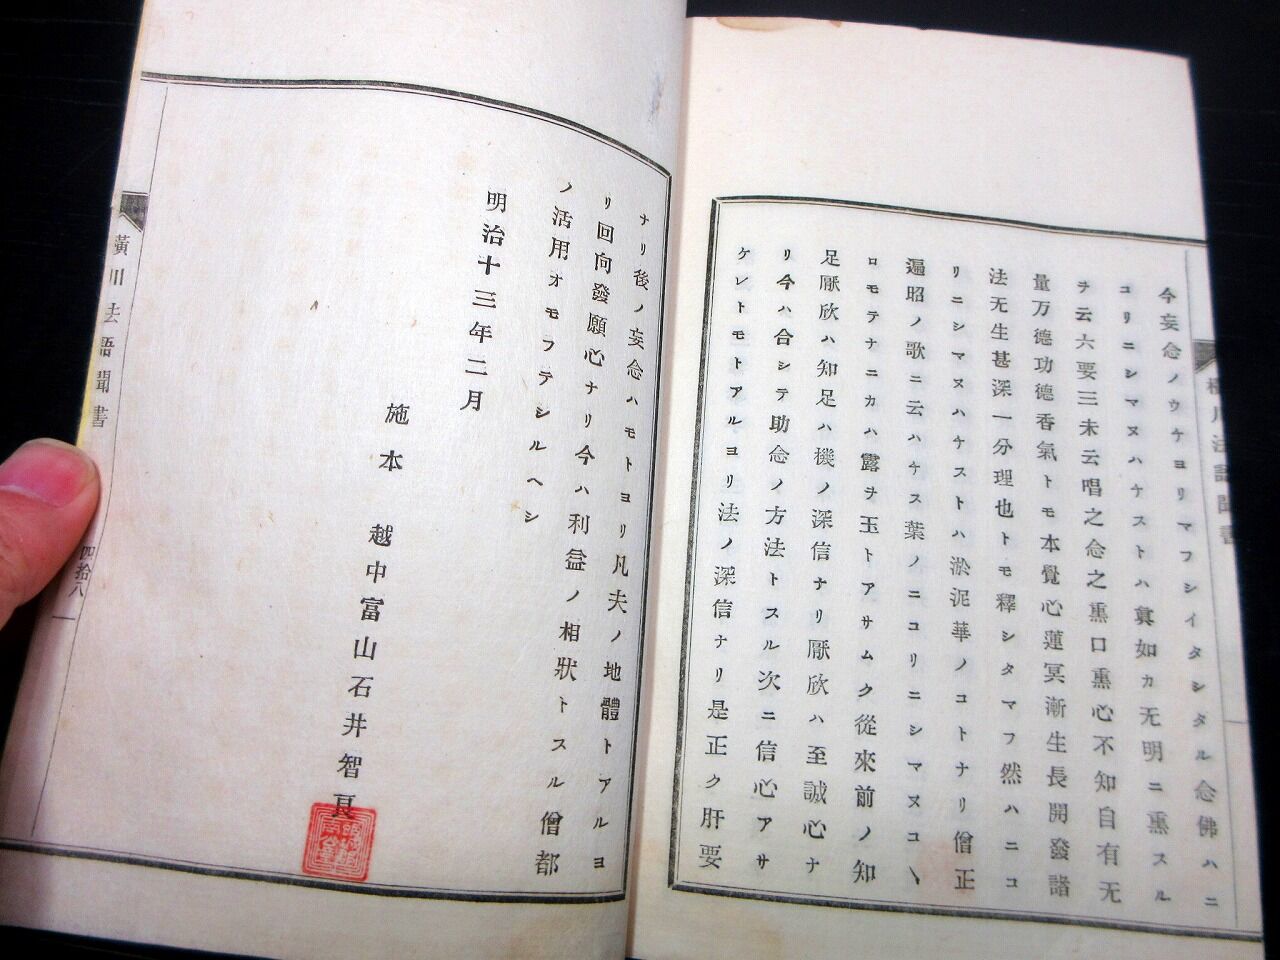 今妄念ノウケヨリマフシイタシタル念佛ハニ
コリニシマヌハケストハ眞如カ无明ニ熏スル
ヲ云六要三末云唱之念之熏口熏心不知自有无
量万德功德香氣トモ本覺心蓮冥漸生長開發諸
法无生甚深一分理也トモ釋シタマフ然ハニコ
リニシマヌハケストハ淤泥華ノコトナリ僧正
遍昭ノ歌ニ云ハケス葉ノニコリニシマヌコヽ
ロモテナニカハ露ヲ玉トアサムク從來前ノ知
足厭欣ハ知足ハ機ノ深信ナリ厭欣ハ至誠心ナ
リ今ハ合シテ助念ノ方法トスル次ニ信心アサ
ケレトモトアルヨリ法ノ深信ナリ是正ク肝要
ナリ後ノ妄念ハモトヨリ凡夫ノ地體トアルヨ
リ回向發願心ナリ今ハ利益ノ相狀トスル僧都
ノ活用オモフテシルヘシ
明治十三年二月
施本 越中富山石井智
橫川法語聞書
四拾八